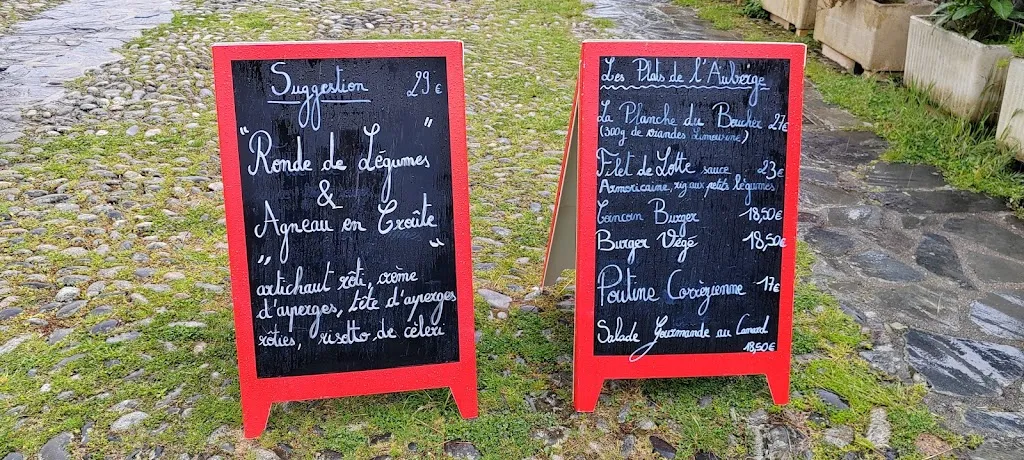 Suggestion 29€
"Ronde de légumes"
&
Agneau en Croûte
" artichaut rôti, crème "
d'asperges, tête d'asperges
rôties, risotto de céleri
Les Plats de l'Auberge
La Planche du Boucher 27€
(300g de viandes Limousine)
Filet de Lotte sauce 23€
Armoricaine, riz aux petits légumes
Coincoin Burger 18,50€
Burger Végé 18,50€
Poutine Corrézienne 17€
Salade Gourmande au Canard
18,50€